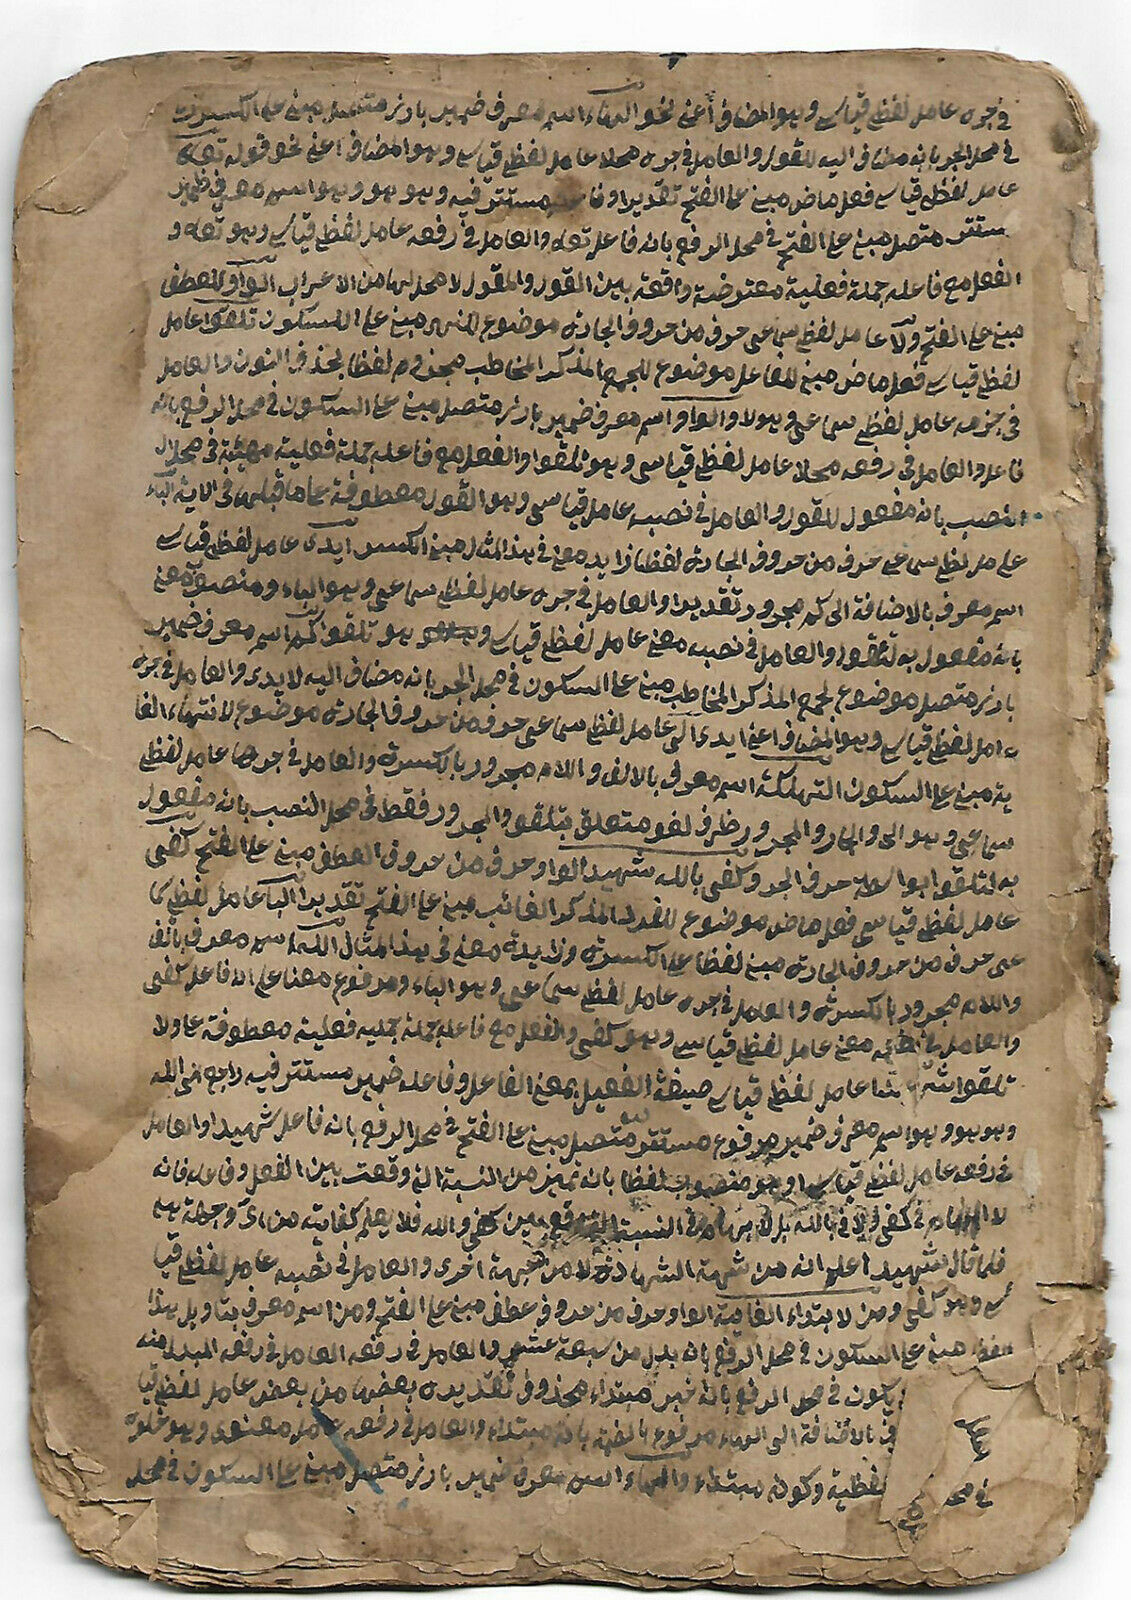 في جره عامل لفظي قياسي وهو المضاف أعني نحو الهاء اسم معرف ضمير بارز متصل مبني على الكسرة
في محل الجر بانه مضاف اليه للقول والعامل في جره محلا عامل لفظي قياسي وهو المضاف اعني نحو قوله تعالى
عامل لفظي قياسي فعل ماض مبني على الفتح تقديرا وفاعله مستتر فيه وهو هو وهو اسم معرف ضمير
مستتر متصل مبني على الفتح في محل الرفع بانه فاعل تعالى والعامل في رفعه عامل لفظي قياسي وهو تعالى و
الفعل مع فاعله جملة فعلية معترضة واقعة بين القول والمقول لا محل لها من الاعراب الواو للعطف
مبني على الفتح ولا عامل لفظي سماعي حرف من حروف الجازم موضوع للنهي مبني على السكون تلقوا عامل
لفظي قياسي فعل ماض مبني للفاعل موضوع للجمع المذكر المخاطب مجزوم لفظا بحذف النون والعامل
في جزمه عامل لفظي سماعي وهو لا والواو اسم معرف ضمير بارز متصل مبني على السكون في محل الرفع بانه
فاعل والعامل في رفعه محلا عامل لفظي قياسي وهو تلقوا والفعل مع فاعله جملة فعلية في محل ال
النصب بانه مفعول للقول والعامل في نصبه عامل قياسي وهو القول معطوفة على ما قبلها في الاية الباء
عامل لفظي سماعي حرف من حروف الجارة لفظا زايد معنا في هذا المثال مبني الكسر ايدي عامل لفظي قياسي
اسم معرف بالاضافة الى كم مجرور تقديرا والعامل في جره عامل لفظي سماعي وهو الباء ومنصوب معنى
بانه مفعول به لتلقوا والعامل في نصبه معنى عامل لفظي قياسي وهو تلقوا كم اسم معرف ضمير
بارز متصل موضوع لجمع المذكر المخاطب مبني على السكون في محل الجر بانه مضاف اليه لايدي والعامل في جره
عامل لفظي قياسي وهو المضاف اعني ايدي الى عامل لفظي سماعي حرف من حروف الجارة موضوع لانتهاء الغا
ية مبني على السكون التهلكة اسم معرف بالالف واللام مجرور بالكسرة والعامل في جرها عامل لفظي
سماعي وهو الى والجار والمجرور ظرف لغو متعلق بتلقوا والمجرور فقط في محل النصب بانه مفعول
به لتلقوا بواسطة حرف الجر وكفى بالله شهيدا الواو حرف من حروف العطف مبني على الفتح كفى
عامل لفظي قياسي فعل ماض موضوع للمفرد المذكر الغائب مبني على الفتح تقديرا الباء عامل لفظي سما
عي حرف من حروف الجارة مبني لفظا على الكسرة وزايدة معنى في هذا المثال الله اسم معرف بالف
واللام مجرور بالكسرة والعامل في جره عامل لفظي سماعي وهو الباء ومرفوع معنا على انه فاعل كفى
والعامل في رفعه معنى عامل لفظي قياسي وهو كفى والفعل مع فاعله جملة فعلية معطوفة على ولا
تلقوا عامل لفظي قياسي صيغة الفعيل بمعنى الفاعل وفاعله ضمير مستتر فيه راجع الى الله
وهو هو وهو اسم معرف ضمير مرفوع مستتر متصل مبني على الفتح في محل الرفع بانه فاعل شهيدا والعامل
في رفعه عامل لفظي قياسي وهو منصوب لفظا بانه تميز من النسبة التي وقعت بين الفعل وفاعله فانه
لا ابهام في كفى ولا في بالله بل الابهام في النسبة التي وقع بين كفى والله فلا يعلم كفايته من اي وجهة هي
فلما قال شهيدا اعلم انه من جهة الشهادة لا من جهة اخرى والعامل في نصبه عامل لفظي قيا
سي وهو كفى ومن لابتداء الغاية الواو حرف من حروف عطف مبني على الفتح ومن اسم معرف بتاويل هذا
لفظ مبني على السكون في محل الرفع بانه بدل من سبعة عشر والعامل في رفعه العامل في رفعه المبدل منه
يكون في محل الرفع بانه خبر مبتداء محذوف تقديره بعضها من بعض عامل لفظي قيا
بالاضافة الى الهاء مرفوع بالضمة بانه مبتداء والعامل في رفعه عامل معنوي وهو خلوه
لفظية وكونه مبتداء والهاء اسم معرف ضمير بارز متصل مبني على السكون في محل